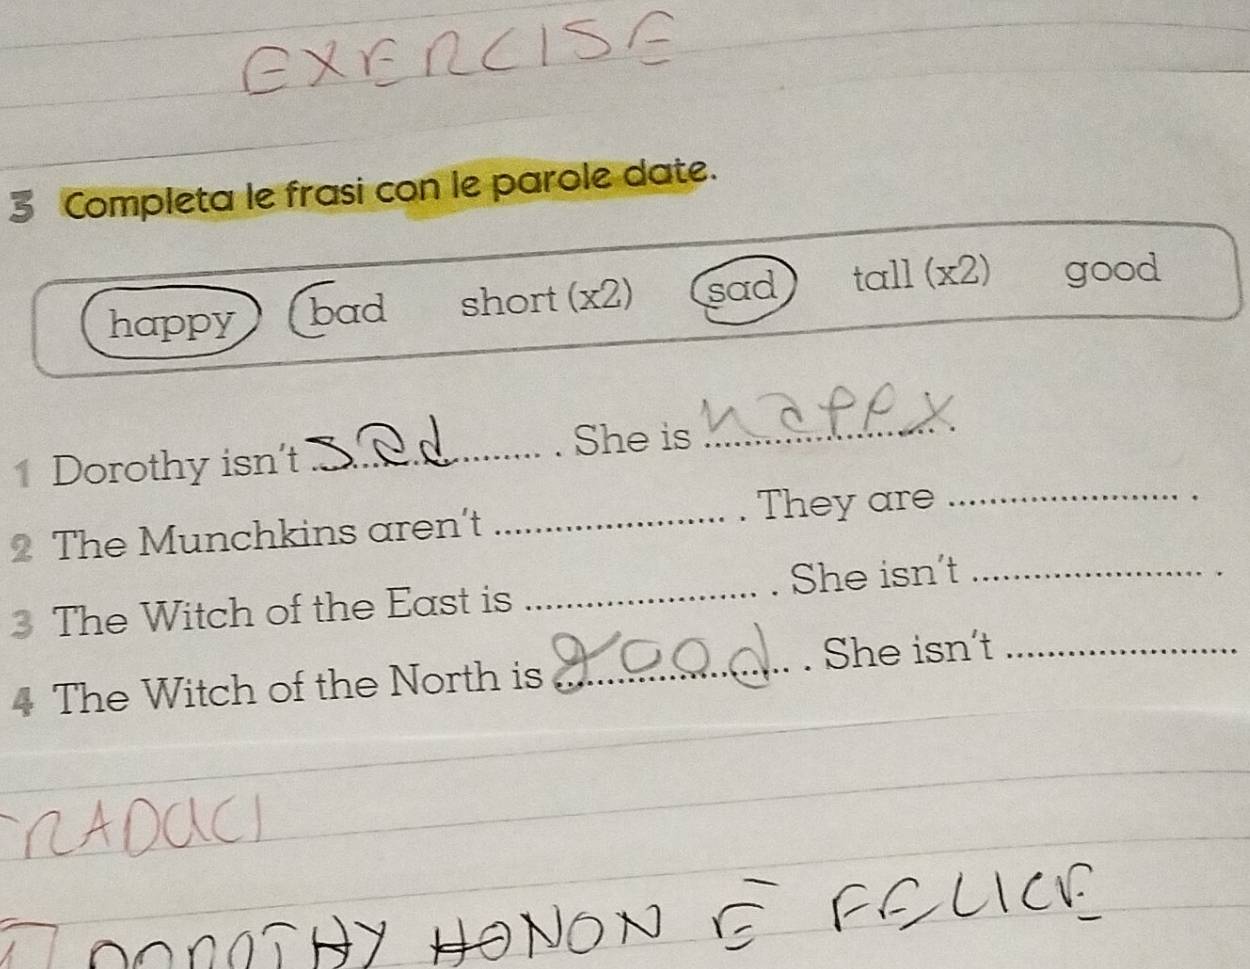 EXERCISE
3 Completa le frasi con le parole date.
happy bad short (x2) sad tall (x2) good
1 Dorothy isn't sad. She is happy.
2 The Munchkins aren't ........................ . They are ........................ .
3 The Witch of the East is ........................ . She isn't ........................ .
4 The Witch of the North is good. She isn't ........................
TRADUCI
1 DOROTHY NON È FELICE